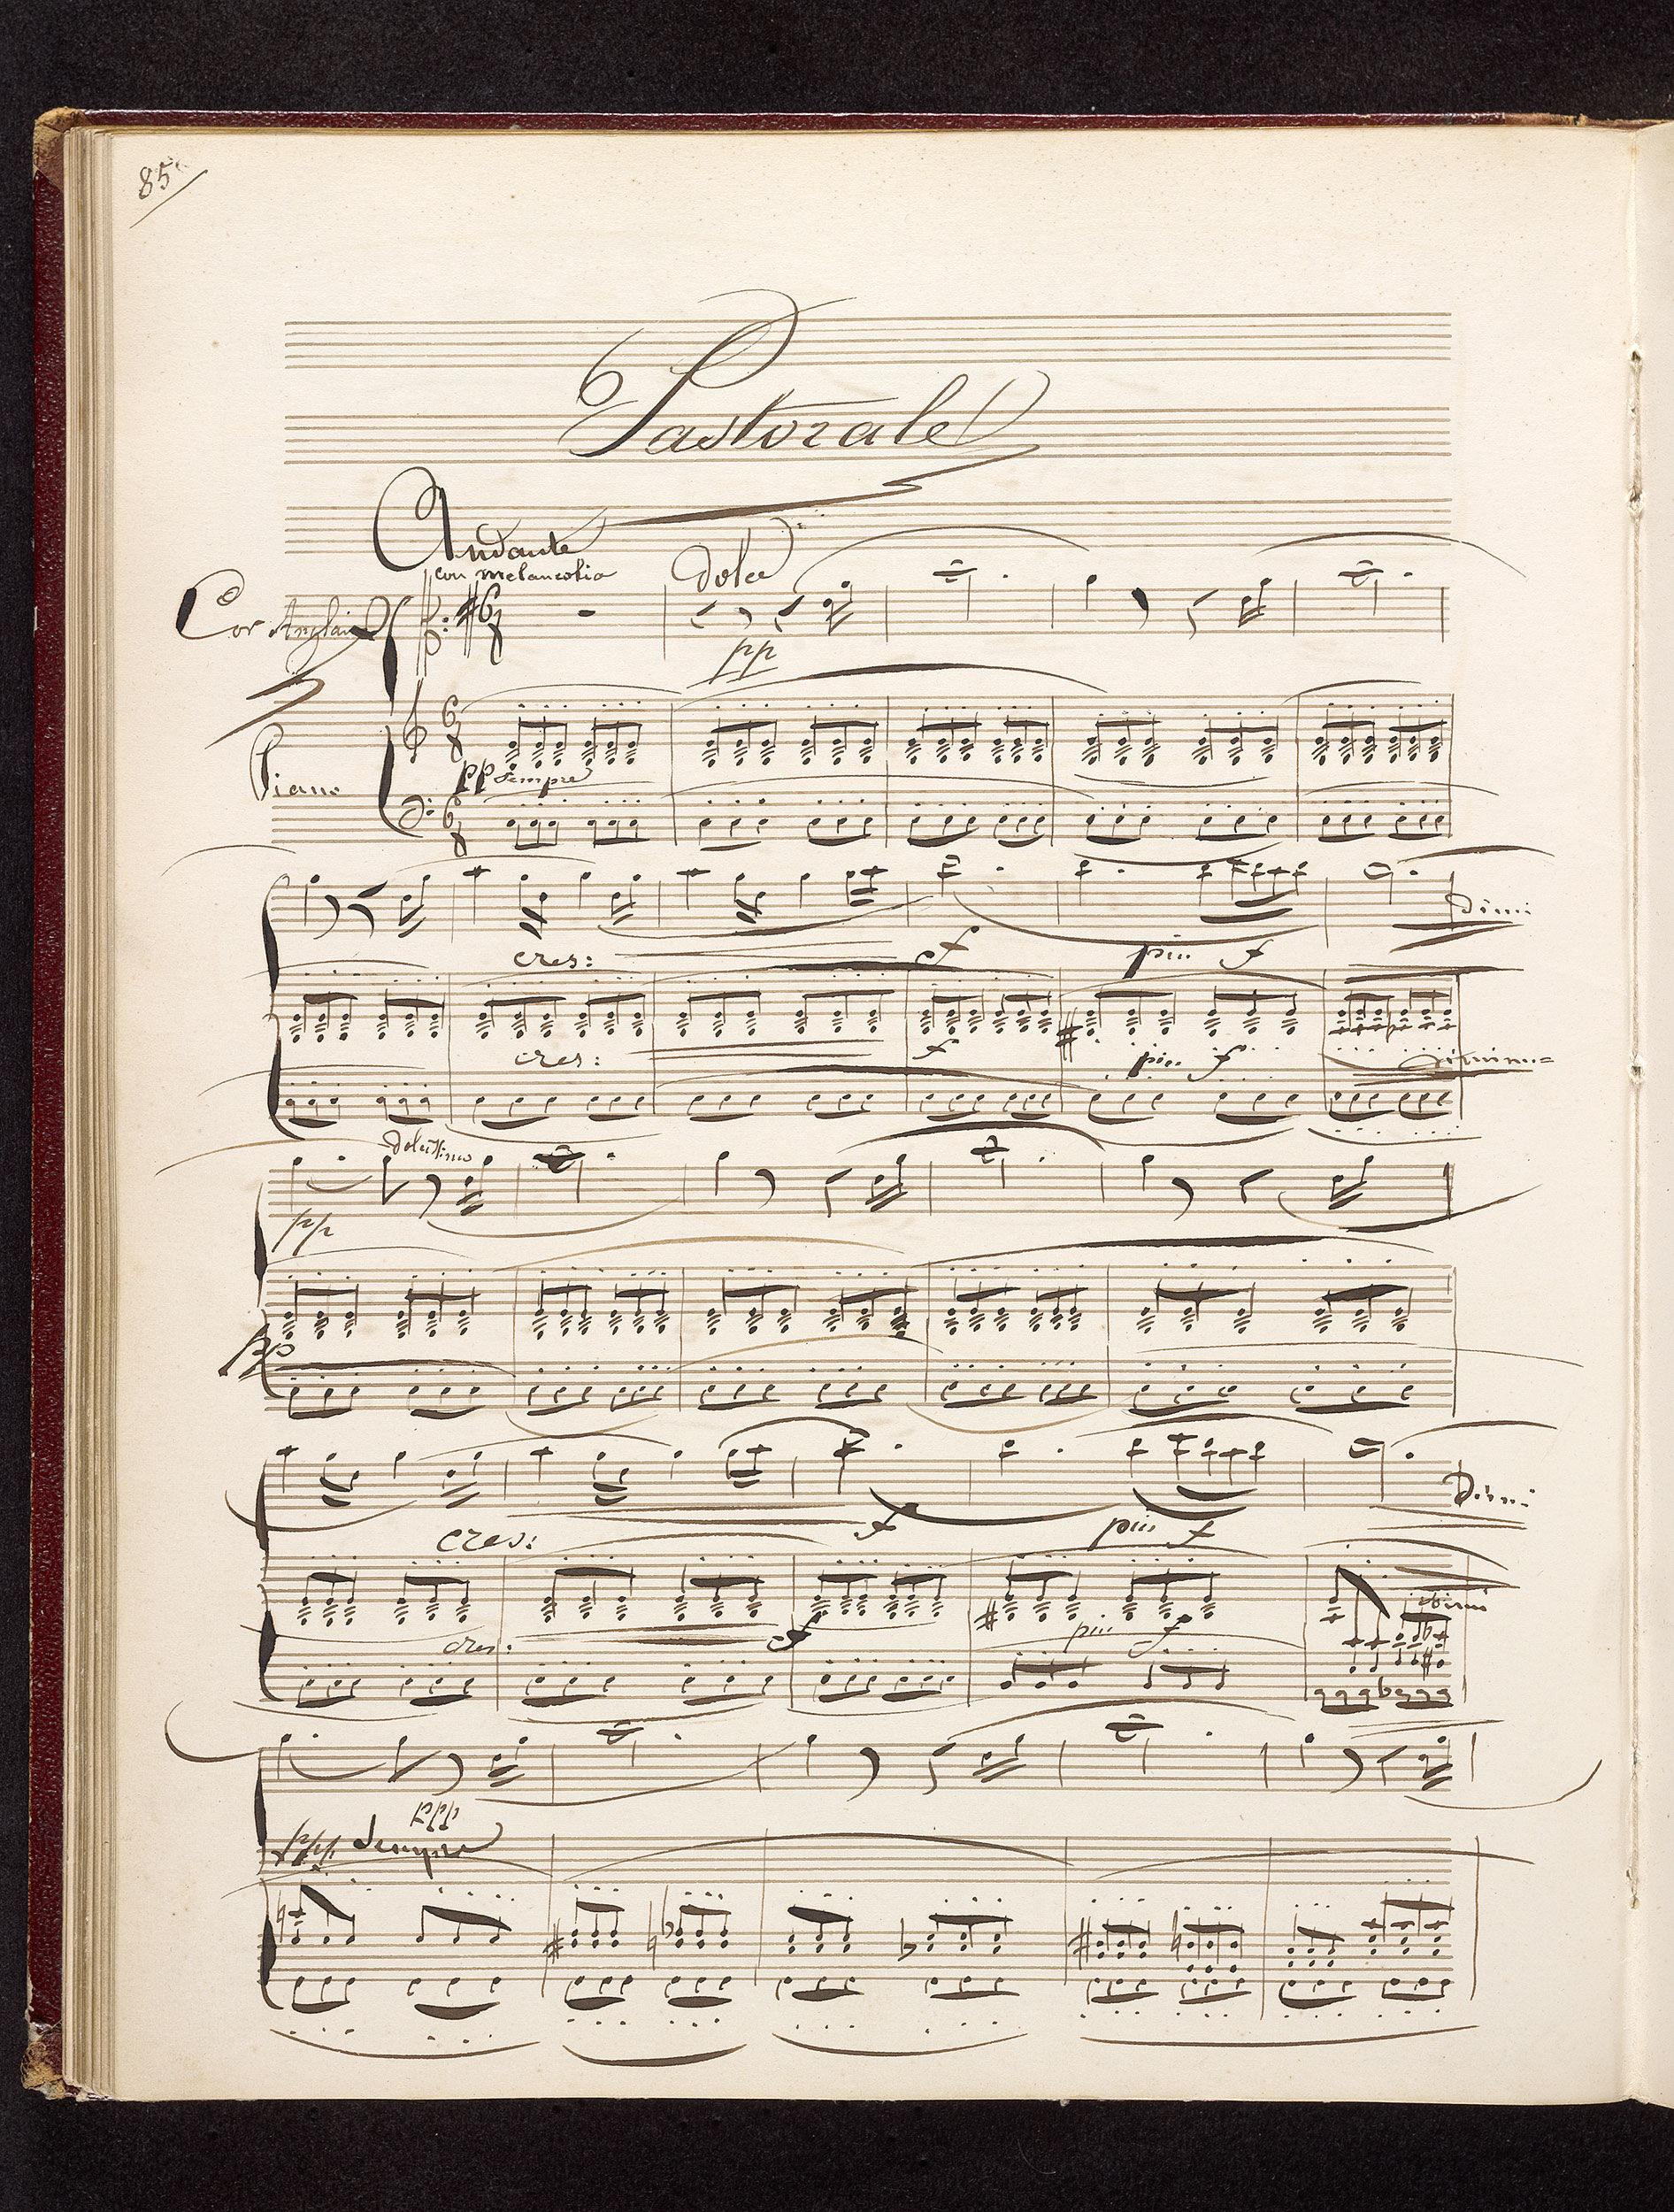 85.
Pastorale
Andante
con melancolia
dolce
Cor Anglais
pp
Piano
pp sempre
Dimi
cres:
f
piu f
cres:
f
piu f
diminu=
dolcissimo
pp
pp
Dimi
cres:
f
piu f
dimi
cres:
f
piu f
ppp
ppp sempre